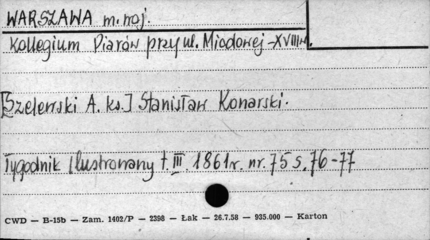 WARSZAWA m. woj.
Kollegium Piarów przy ul. Miodowej - XVIII w.
[Szelewski A. ks.] Stanisław Konarski.
Tygodnik Ilustrowany t. III. 1861r. nr. 75 s. 76-77
CWD — B-15b — Zam. 1402/P — 2398 — Łak — 26.7.58 — 935.000 — Karton